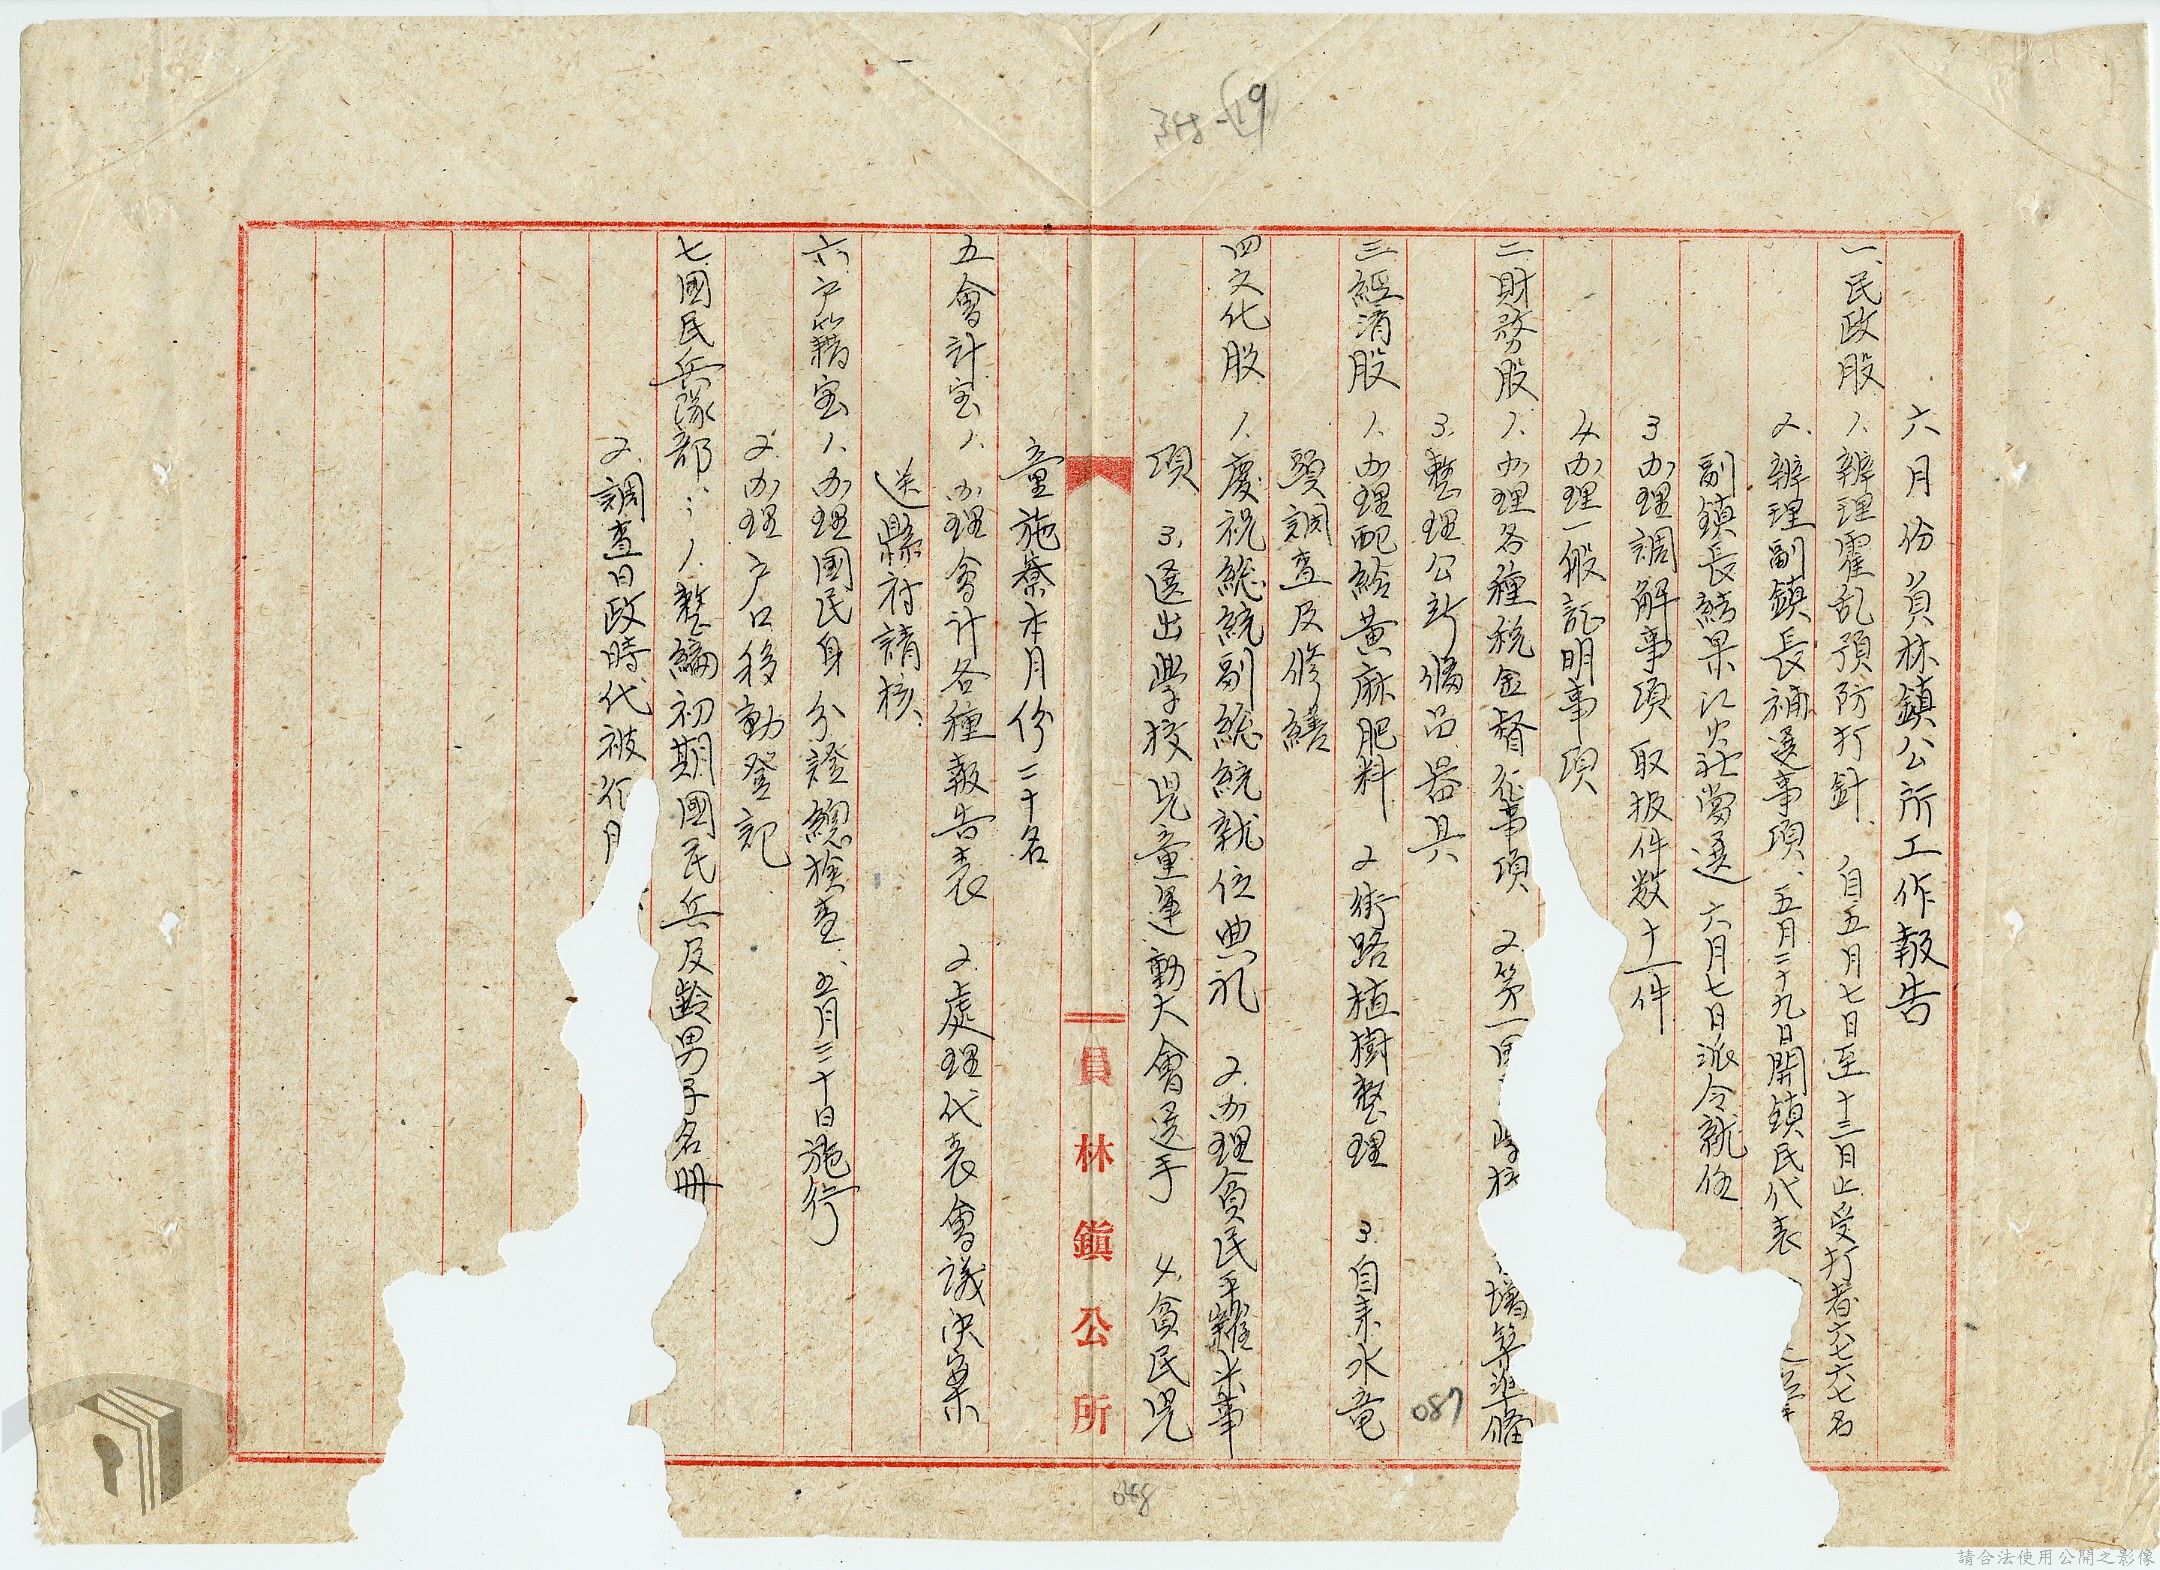 348-19
六月份員林鎮公所工作報告
一、民政股 1.辦理霍乱預防打針 自五月七日至十三日止受打者六七六七名
2.辦理副鎮長補選事項、五月二十九日開鎮民代表
副鎮長結果江火社當選 六月七日派令就任
3.办理調解事項 取扱件数十一件
4.办理一般証明事項
二財務股 1.办理各種税金督征事項 2.第一 增算準備
3.整理公所備品器具
087
三經済股 1.办理配給黃麻肥料 2.街路植樹整理 3.自来水竜
頭調查及修繕
四文化股 1.慶祝総統副総統就位典礼 2.办理貧民平糶米事
項 3.選出學校児童運動大會選手 4.貧民児
員林鎮公所
048
童施療本月份二十名
五會計室 1.办理會計各種報告表 2.處理代表會議决案
送縣府請核
六戶籍室 1.办理国民身分證總檢查、五月三十日施行
2.办理戶口移動登記
七國民兵隊部：1.整編初期國民兵及齡男子名冊
2.調查日政時代被
請合法使用公開之影像